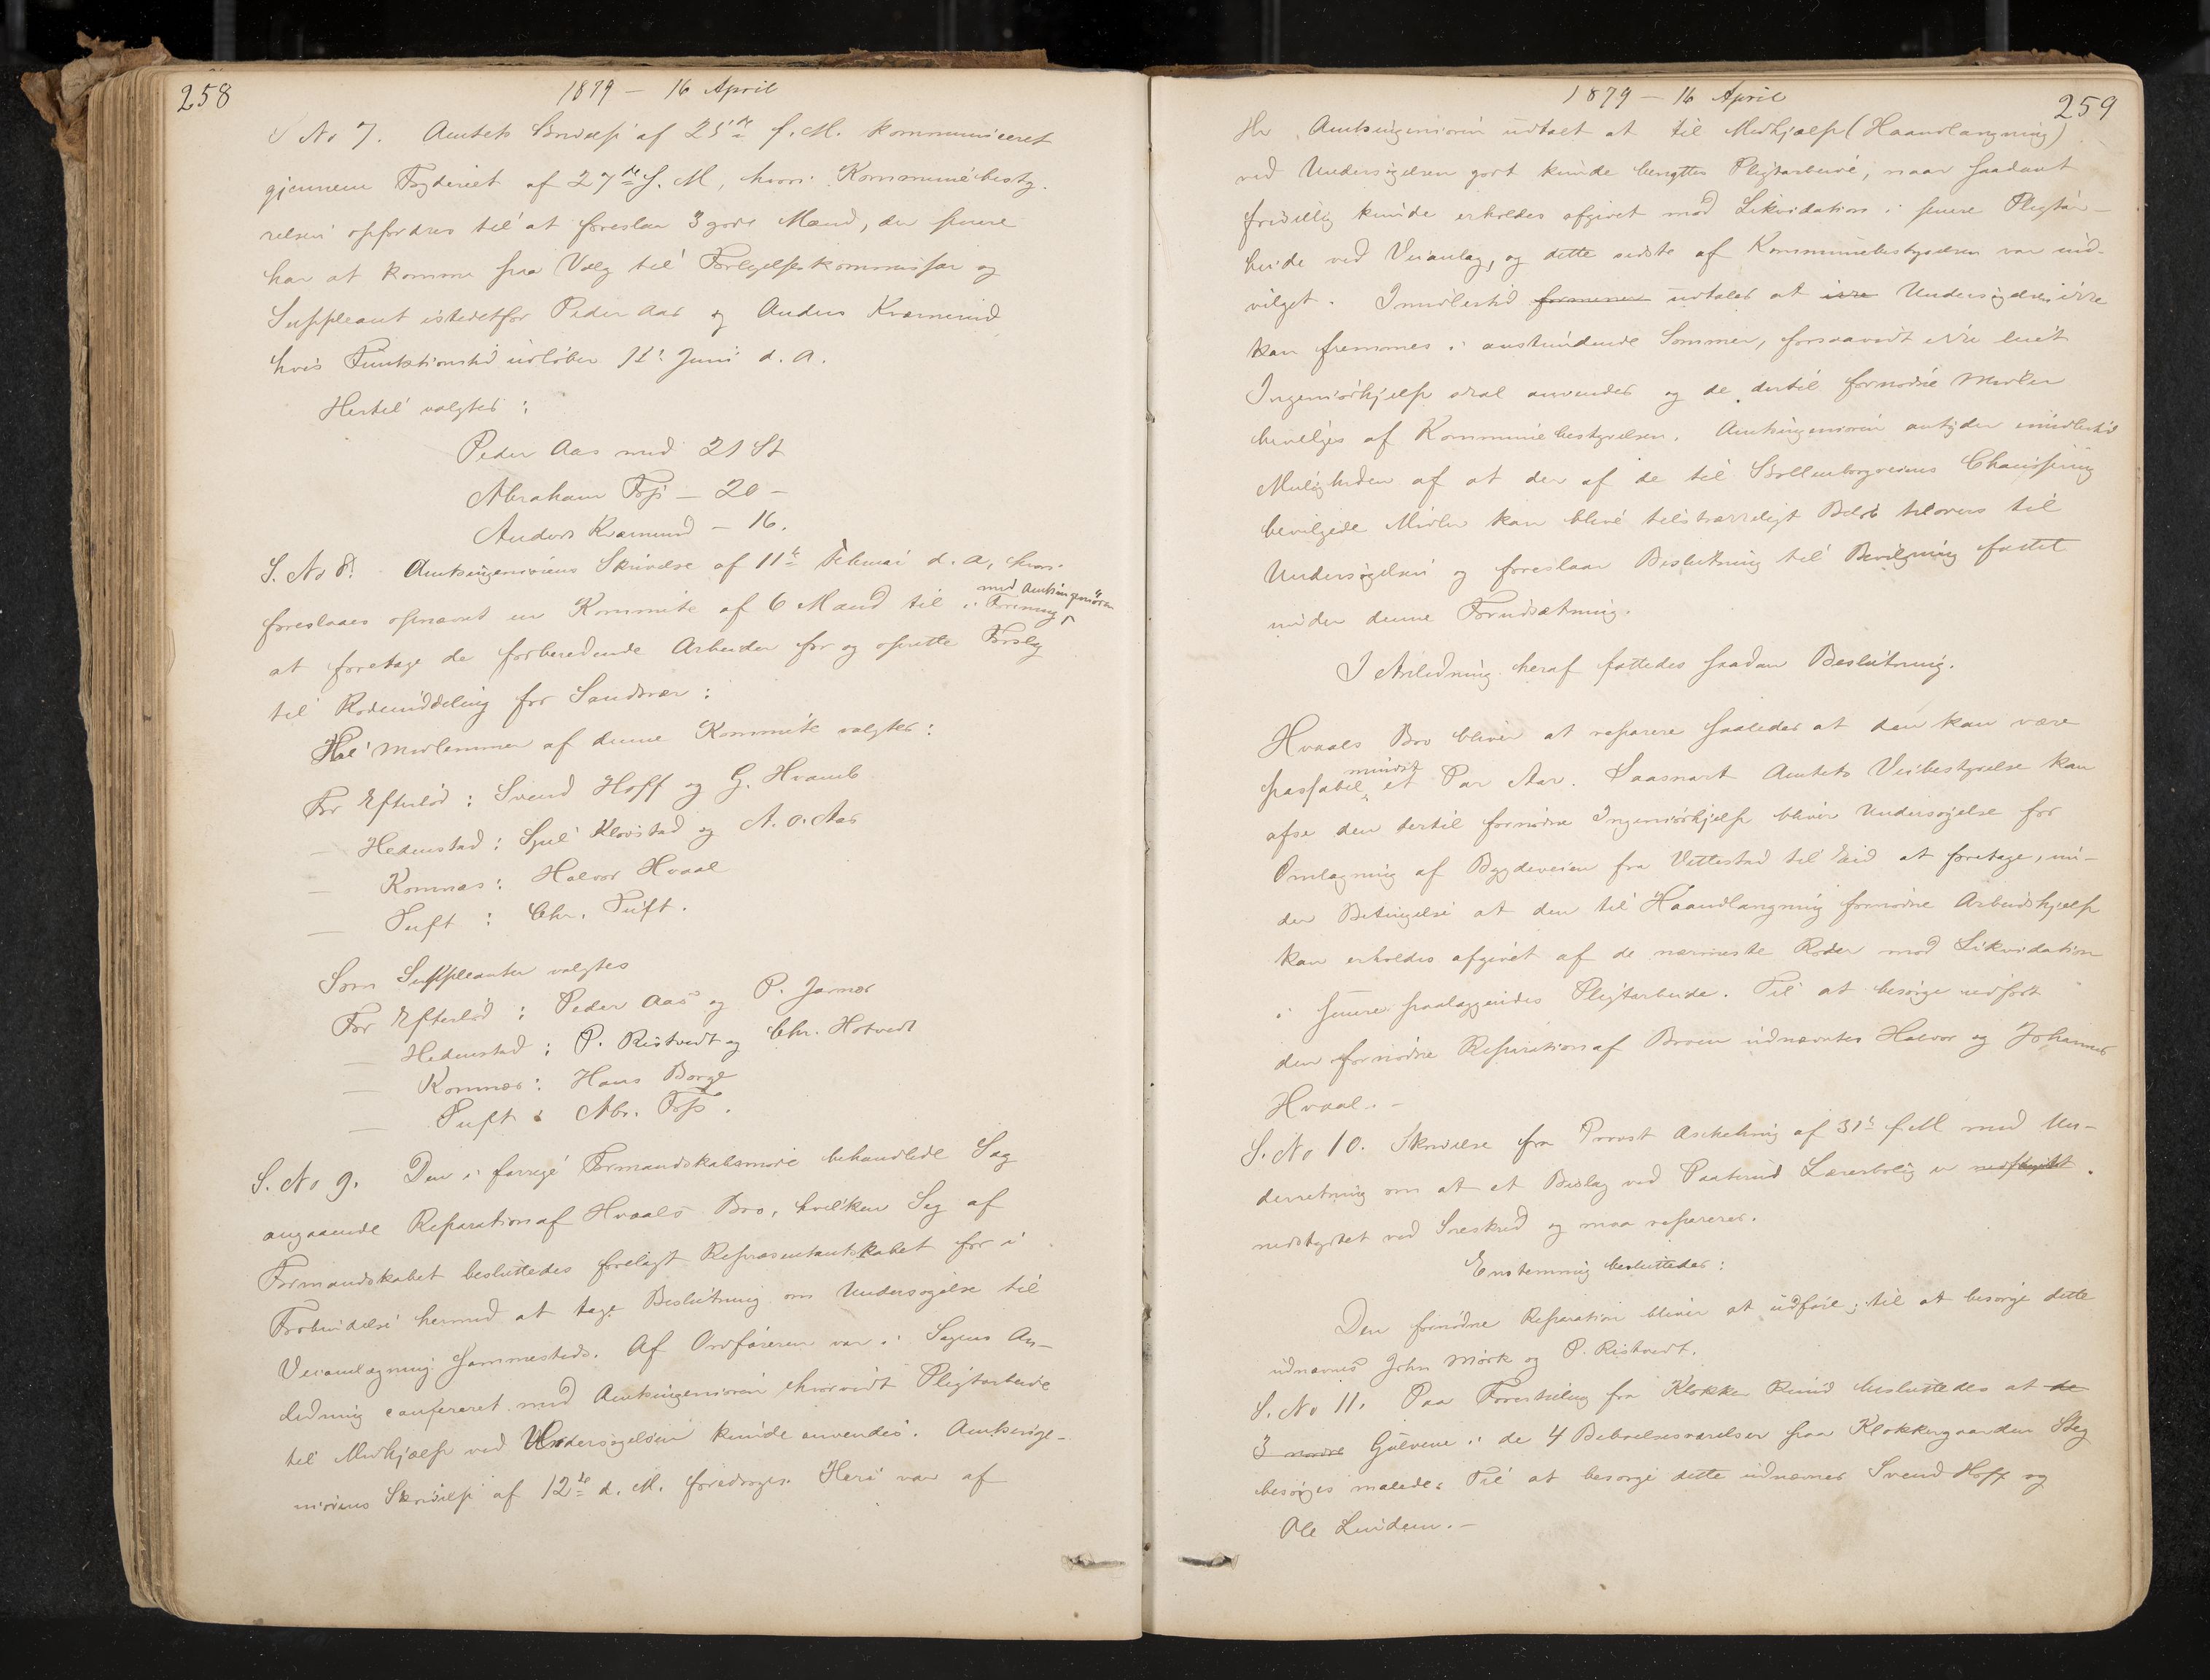 258
1879 – 16 April
S No 7. Amtets Skrivelse af 25de f. M. kommuniceret
gjennem Fogderiet af 27de f. M, hvori Kommunebesty-
relsen opfordres til at foreslaa 3 gode Mænd, der senere
har at komme paa Valg til Forligelseskommissær og
Suppleant istedetfor Peder Aas og Anders Kværnerud
hvis Funktionstid udløber 11te Juni d. A.
Hertil valgtes:
Peder Aas med 21 St
Abraham Foss – 20 –
Anders Kværnerud – 16.
S. No 8. Amtsingeniørens Skrivelse af 11te Februar d. A, hvori
foreslaaes opnævnt en Kommite af 6 Mænd til i Forening med Amtsingeniøren
at foretage de forberedende Arbeider for og oprette Forslag
til Rodeinddeling for Sandsvær:
Til Medlemmer af denne Kommite valgtes:
For Efteløt: Svend Hoff og G. Hvamb
— Hedenstad: Gjul Klovstad og A. O. Aas
— Komnæs: Halvor Hvaal
— Tuft: Chr. Tuft.
Som Suppleanter valgtes
For Efteløt: Peder Aas og P. Jarnæs
— Hedenstad: P. Ristvedt og Chr. Hotvedt
— Komnæs: Hans Borge
— Tuft: Abr. Foss.
S. No 9. Den i forrige Formandskabsmøde behandlede Sag
angaaende Reparation af Hvaals Bro, hvilken Sag af
Formandskabet besluttedes forelagt Repræsentantskabet for i
Forbindelse hermed at tage Beslutning om Undersøgelse til
Veiomlægning sammesteds. Af Ordføreren var i Sagens An-
ledning confereret med Amtsingeniøren hvorvidt Pligtarbeide
til Medhjælp ved Undersøgelsen kunde anvendes. Amtsinge-
niørens Skrivelse af 12te d. M. foredroges. Heri var af
1879 – 16 April
259
Hr Amtsingeniøren udtalt at til Medhjælp (Haandlangning)
ved Undersøgelsen godt kunde benyttes Pligtarbeide, naar saadant
frivillig kunde erholdes afgivet mod Likvidation i senere Pligtar-
beide ved Veianlæg, og dette sidste af Kommunebestyrelsen var ind-
vilget. Imidlertid formener udtales at ikke Undersøgelsen ikke
kan fremmes i anstundende Sommer, forsaavidt ikke leiet
Ingeniørhjælp skal anvendes og de dertil fornødne Midler
bevilges af Kommunebestyrelsen. Amtsingeniøren antyder imidlertid
Muligheden af at der af de til Skollenborgveiens Chaussering
bevilgede Midler kan blive tilstrækkeligt Beløb tilovers til
Undersøgelsen og foreslaar Beslutning til Bevilgning fattet
under denne Forudsætning.
I Anledning heraf fattedes saadan Beslutning.
Hvaals Bro bliver at reparere saaledes at den kan være
passabel mindst et Par Aar. Saasnart Amtets Veibestyrelse kan
afse den dertil fornødne Ingeniørhjælp bliver Undersøgelse for
Omlægning af Bygdeveien fra Vittestad til Eid at foretage, un-
der Betingelse at den til Haandlangning fornødne Arbeidshjælp
kan erholdes afgivet af de nærmeste Roder mod Likvidation
i senere paaliggendes Pligtarbeide. Til at besørge udført
den fornødne Reparation af Broen udnævntes Halvor og Johannes
Hvaal. –
S. No 10. Skrivelse fra Provst Aschehoug af 31te f. M med Un-
derretning om at et Bislag ved Paaterud Lærerbolig er nedstyrtet.
nedstyrtet ved Sneskred og maa repareres.
Enstemmig besluttedes:
Den fornødne Reparation bliver at udføre; til at besørge dette
udnævnes John Mørk og P. Ristvedt.
S. No 11. Paa Forestilling fra Klokker Ruud besluttedes at de
3 nedre Gulvene i de 4 Beboelsesværelser paa Klokkergaarden Steg
besørges malede. Til at besørge dette udnævnes Svend Hoff og
Ole Lindem. –